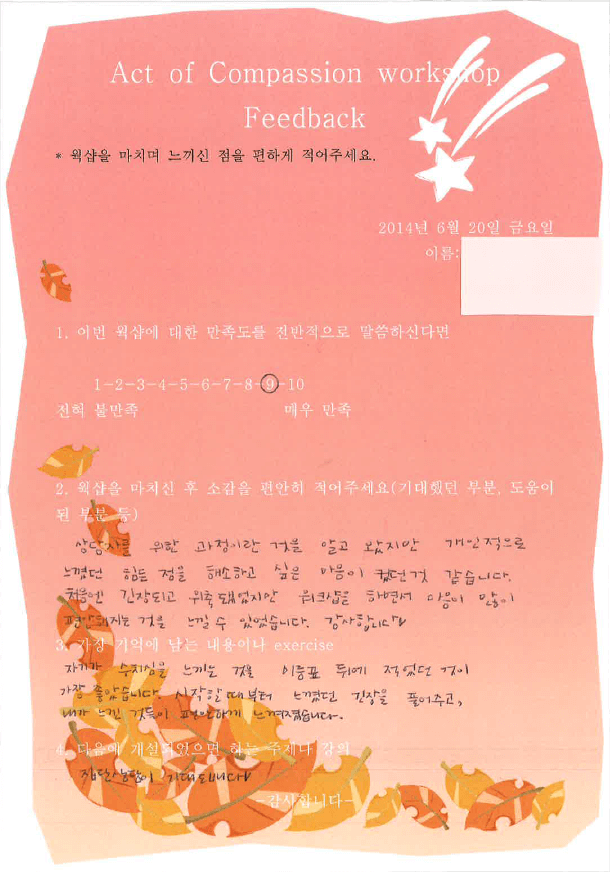 Act of Compassion workshop
Feedback
* 웍샵을 마치며 느끼신 점을 편하게 적어주세요.
2014년 6월 20일 금요일
이름:
1. 이번 웍샵에 대한 만족도를 전반적으로 말씀하신다면
1-2-3-4-5-6-7-8-9-10
전혀 불만족 매우 만족
2. 웍샵을 마치신 후 소감을 편안히 적어주세요(기대했던 부분, 도움이
된 부분 등)
상담사를 위한 과정이란 것을 알고 왔지만 개인적으로
느꼈던 힘든 점을 해소하고 싶은 마음이 컸던것 같습니다.
처음엔 긴장되고 위축됐었지만 워크샵을 하면서 마음이 많이
편안해지는 것을 느낄 수 있었습니다. 감사합니다
3. 가장 기억에 남는 내용이나 exercise
자기가 수치심을 느끼는 것을 이름표 뒤에 적었던 것이
가장 좋았습니다. 시작할때부터 느꼈던 긴장을 풀어주고,
내가 느낀 것들이 편안하게 느껴졌습니다.
4. 다음에 개설되었으면 하는 주제나 강의
집단상담이 기대됩니다
-감사합니다-